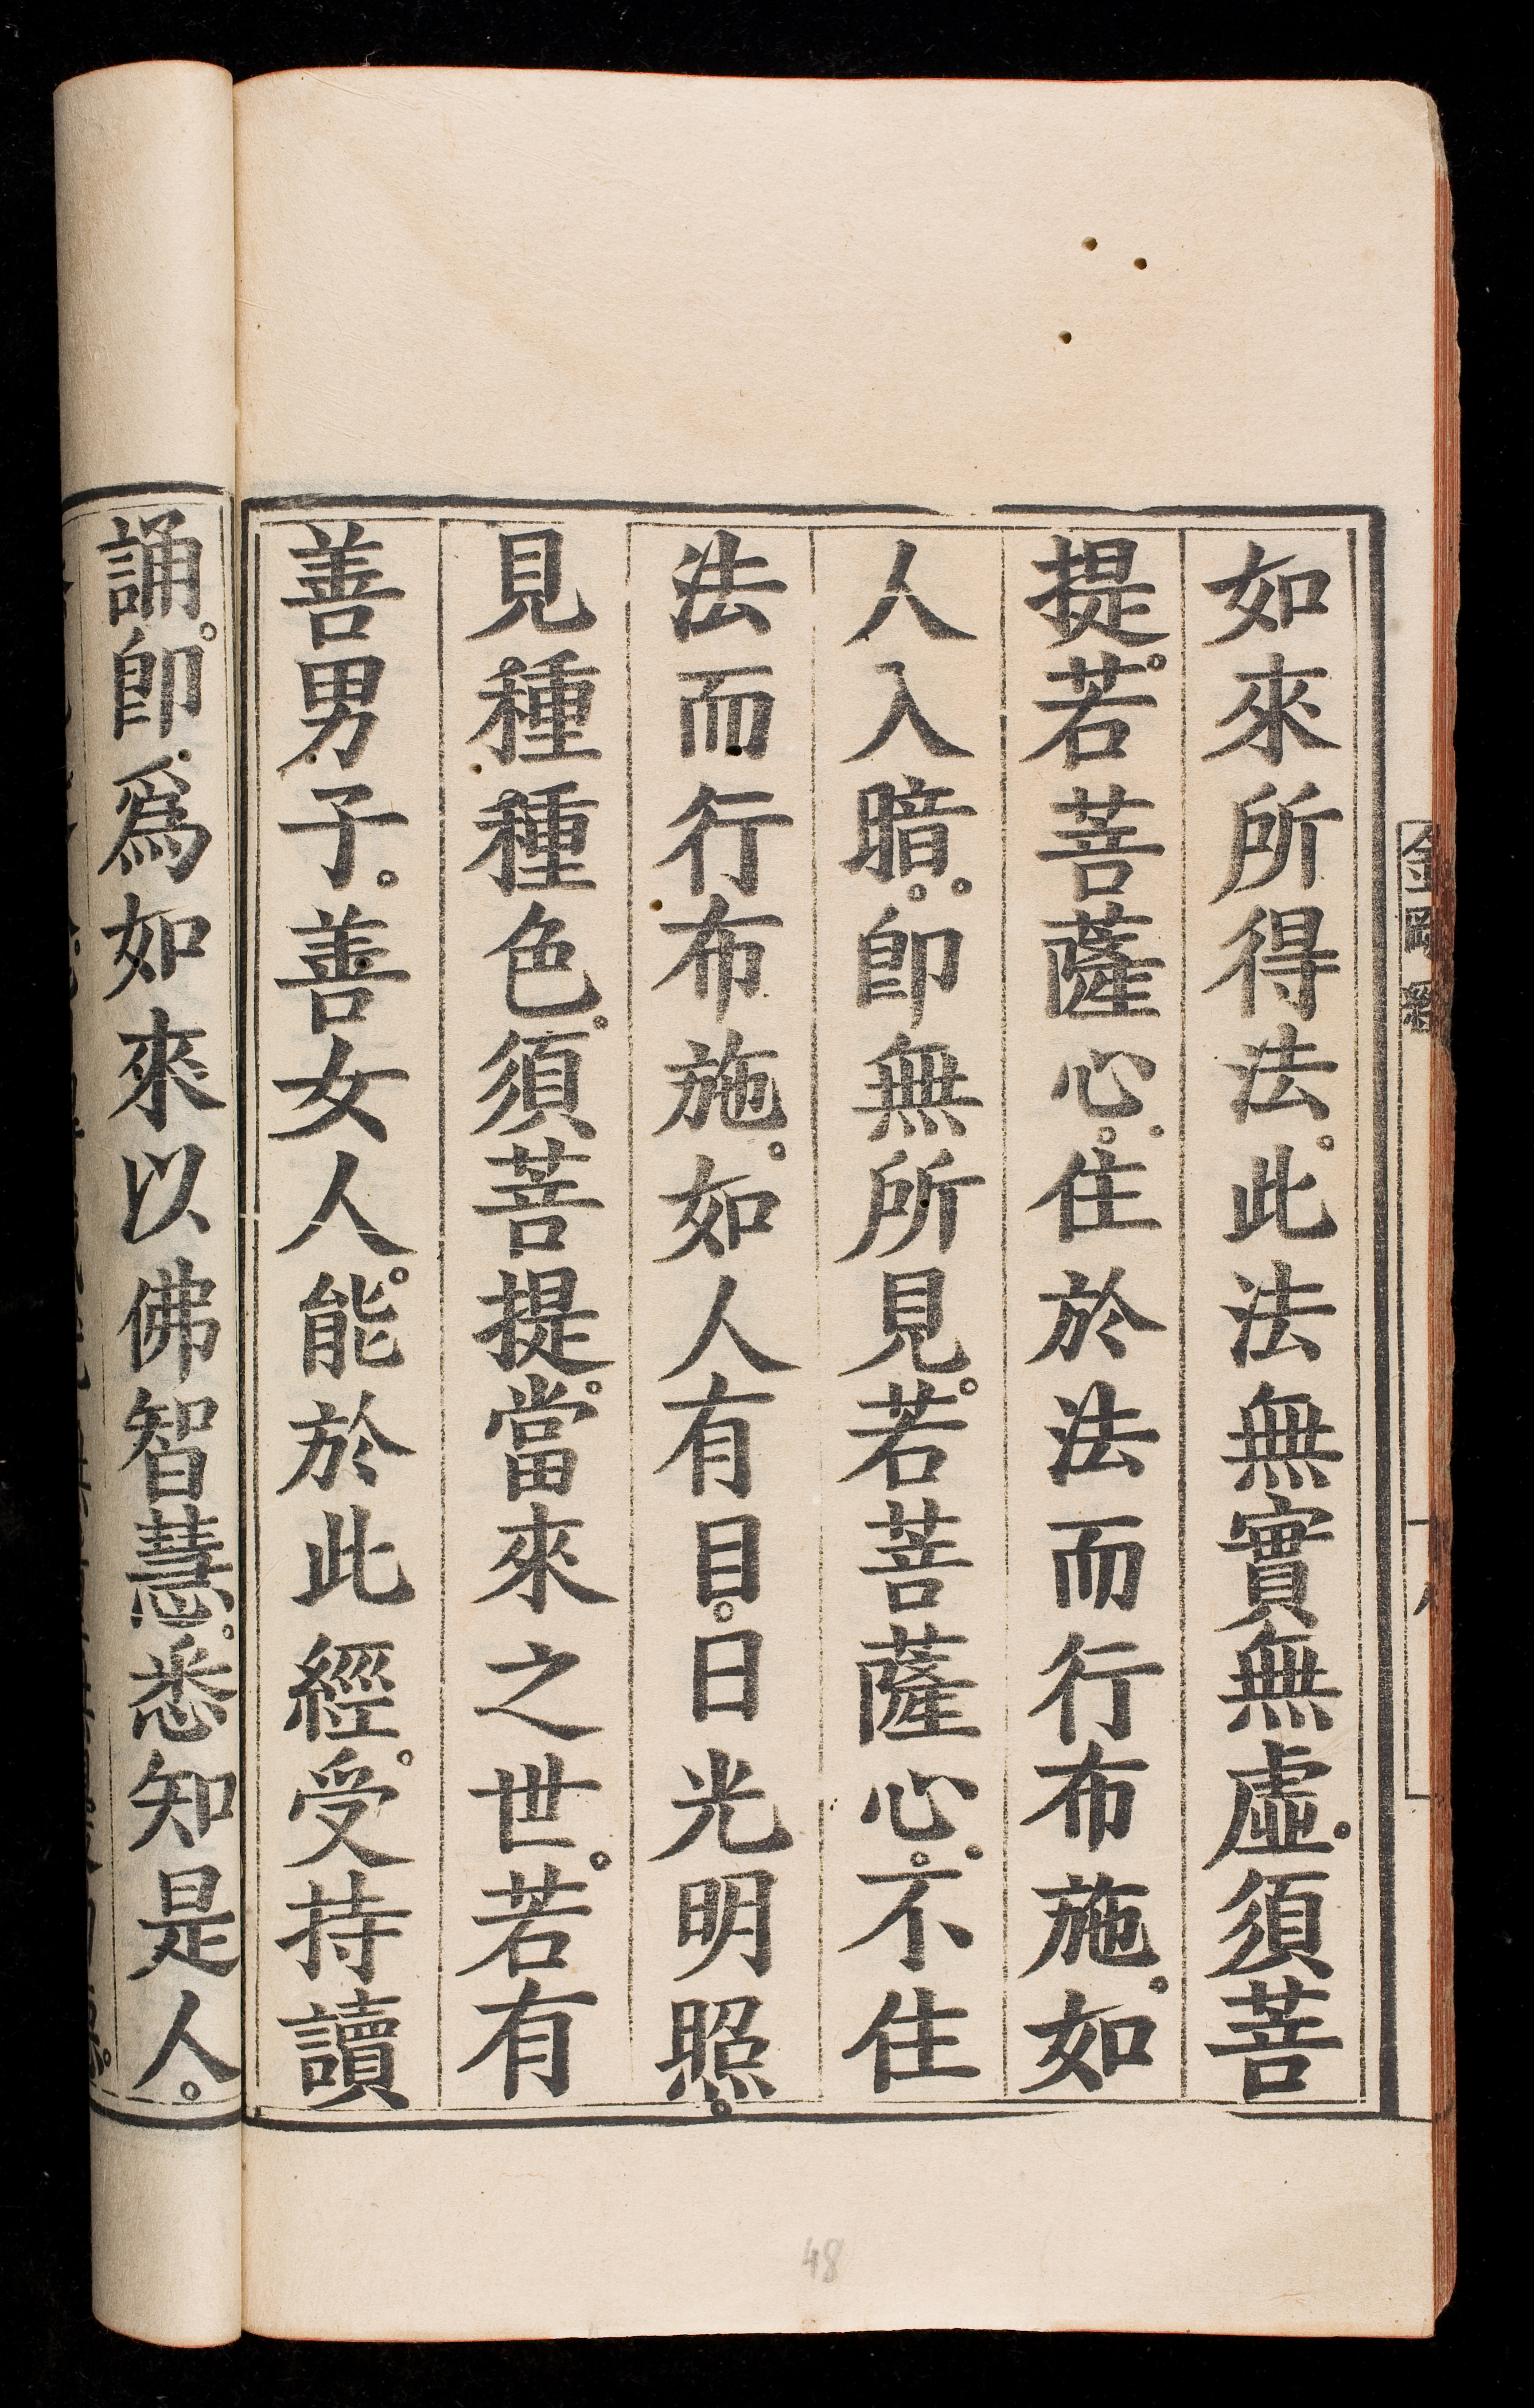 金剛經
如來所得法。此法無實無虛。須菩
提。若菩薩心。住於法而行布施。如
人入暗。即無所見。若菩薩心。不住
法而行布施。如人有目。日光明照。
見種種色。須菩提。當來之世。若有
善男子。善女人。能於此經。受持讀
誦。即爲如來以佛智慧。悉知是人。
48